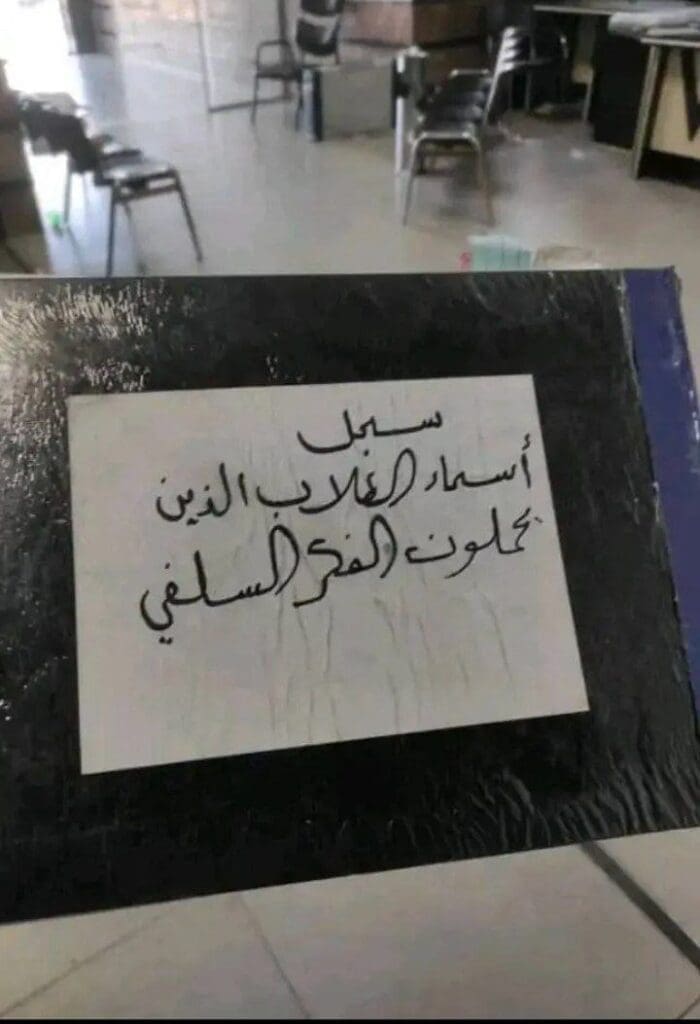 سجل
أسماء الطلاب الذين
يحملون الفكر السلفي